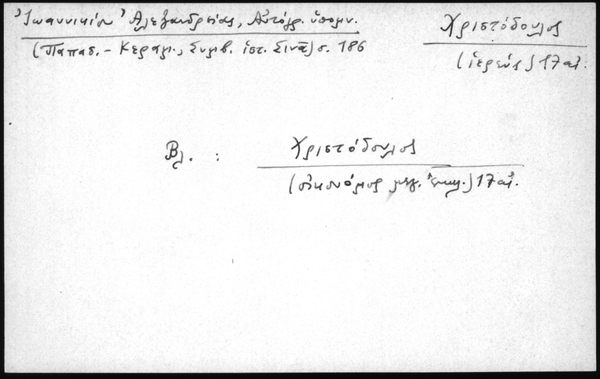 Ἰωαννικίου Ἀλεξανδρείας, Αὐτόγρ. ὑπομν.
(Παπαδ. - Κεραμ., Συμβ. ἱστ. Σινᾶ) σ. 186
Χριστόδουλος
(ἱερεύς) 17 αἰ.
Βλ. : Χριστόδουλος
(οἰκονόμος μεγ. ἐκκλ.) 17 αἰ.